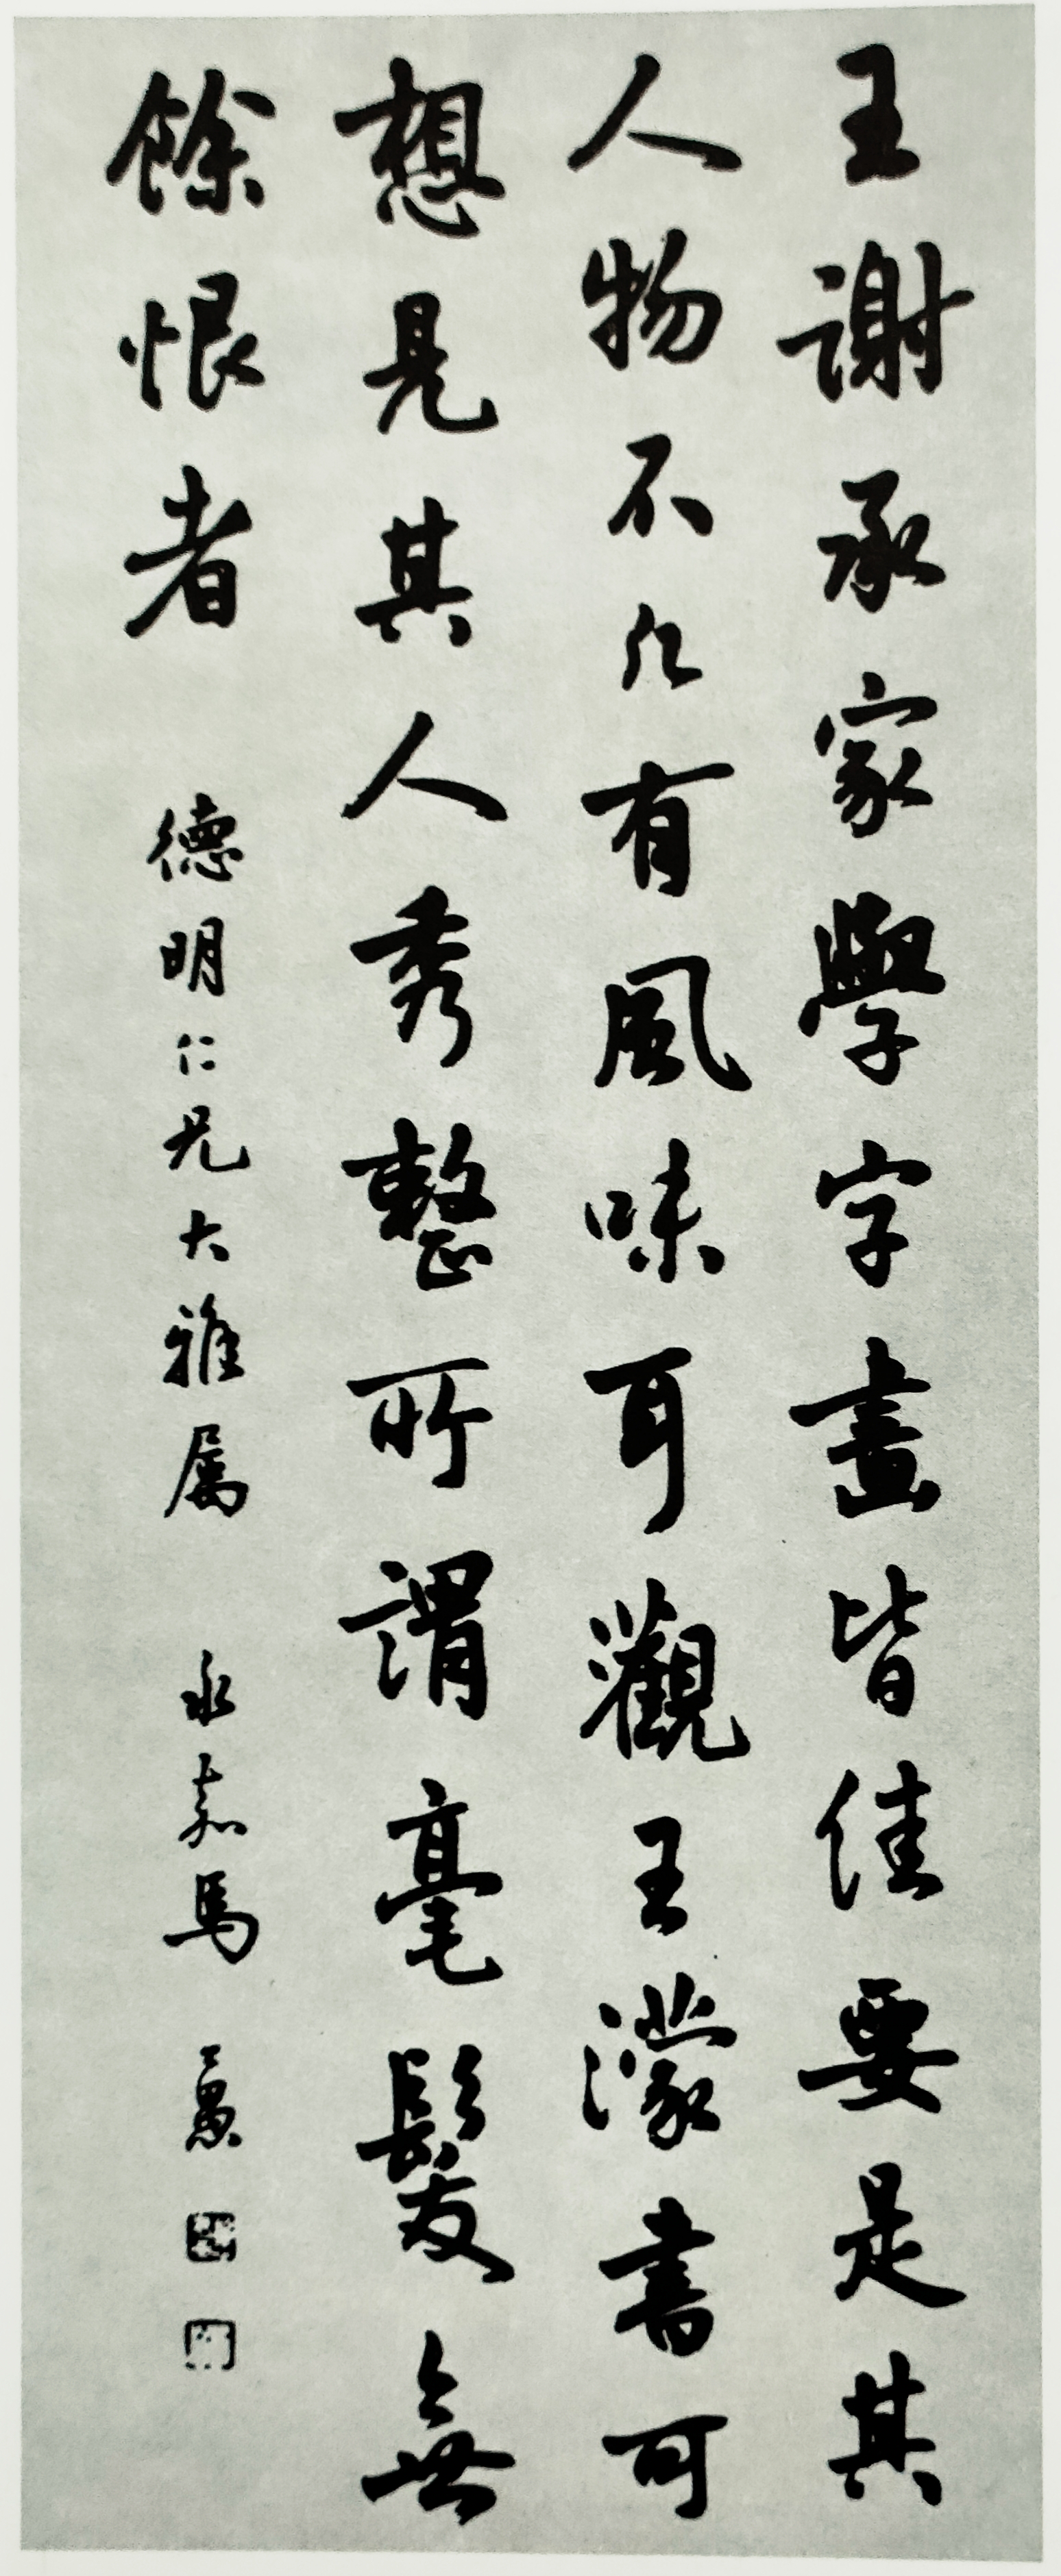 王謝承家學字畫皆佳要是其
人物不凡有風味耳觀王濛書可
想見其人秀整所謂毫髮無
餘恨者
德明仁兄大雅属 永嘉馬公愚